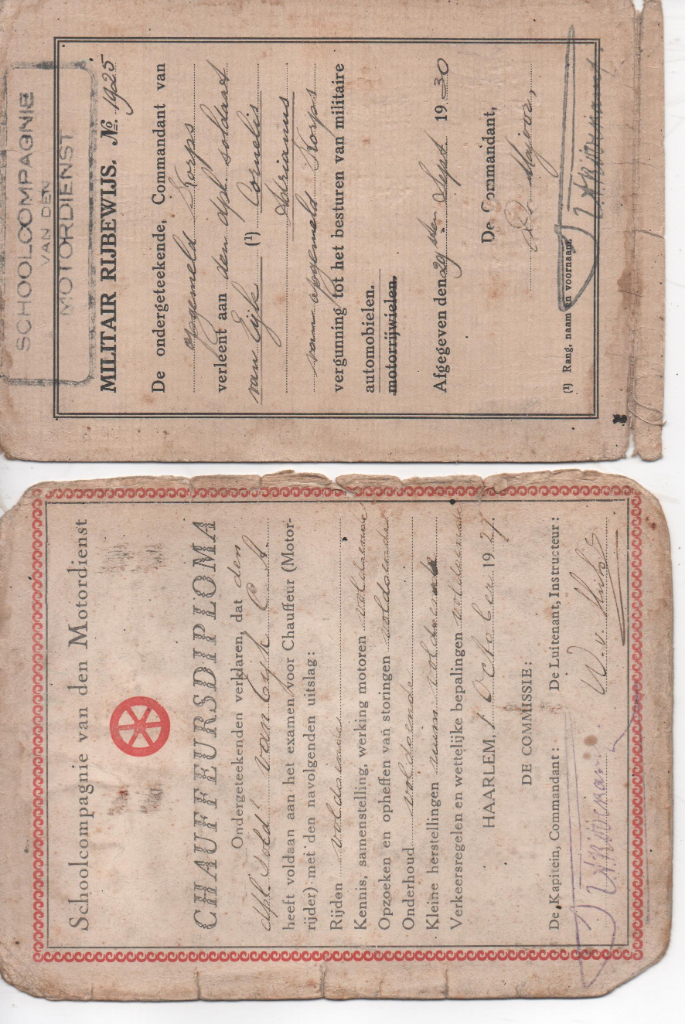 SCHOOLCOMPAGNIE
VAN DEN
MOTORDIENST
MILITAIR RIJBEWIJS. № 1925
De ondergeteekende, Commandant van
opgemeld Korps
verleent aan den dpl. soldaat
van Eijk (¹) Cornelis
Adrianus
van opgemeld Korps
vergunning tot het besturen van militaire
automobielen.
motorrijwielen.
Afgegeven den 29sten Sept 1930
De Commandant,
De Majoor,
(¹) Rang, naam en voornaam.
Schoolcompagnie van den Motordienst
CHAUFFEURSDIPLOMA
Ondergeteekenden verklaren, dat den
dpl. Sold. van Eijk C A
heeft voldaan aan het examen voor Chauffeur (Motor-
rijder) met den navolgenden uitslag:
Rijden voldoende
Kennis, samenstelling, werking motoren voldoende
Opzoeken en opheffen van storingen voldoende
Onderhoud voldoende
Kleine herstellingen ruim voldoende
Verkeersregelen en wettelijke bepalingen voldoende
HAARLEM, 1 October 1927.
DE COMMISSIE:
De Kapitein, Commandant: De Luitenant, Instructeur: